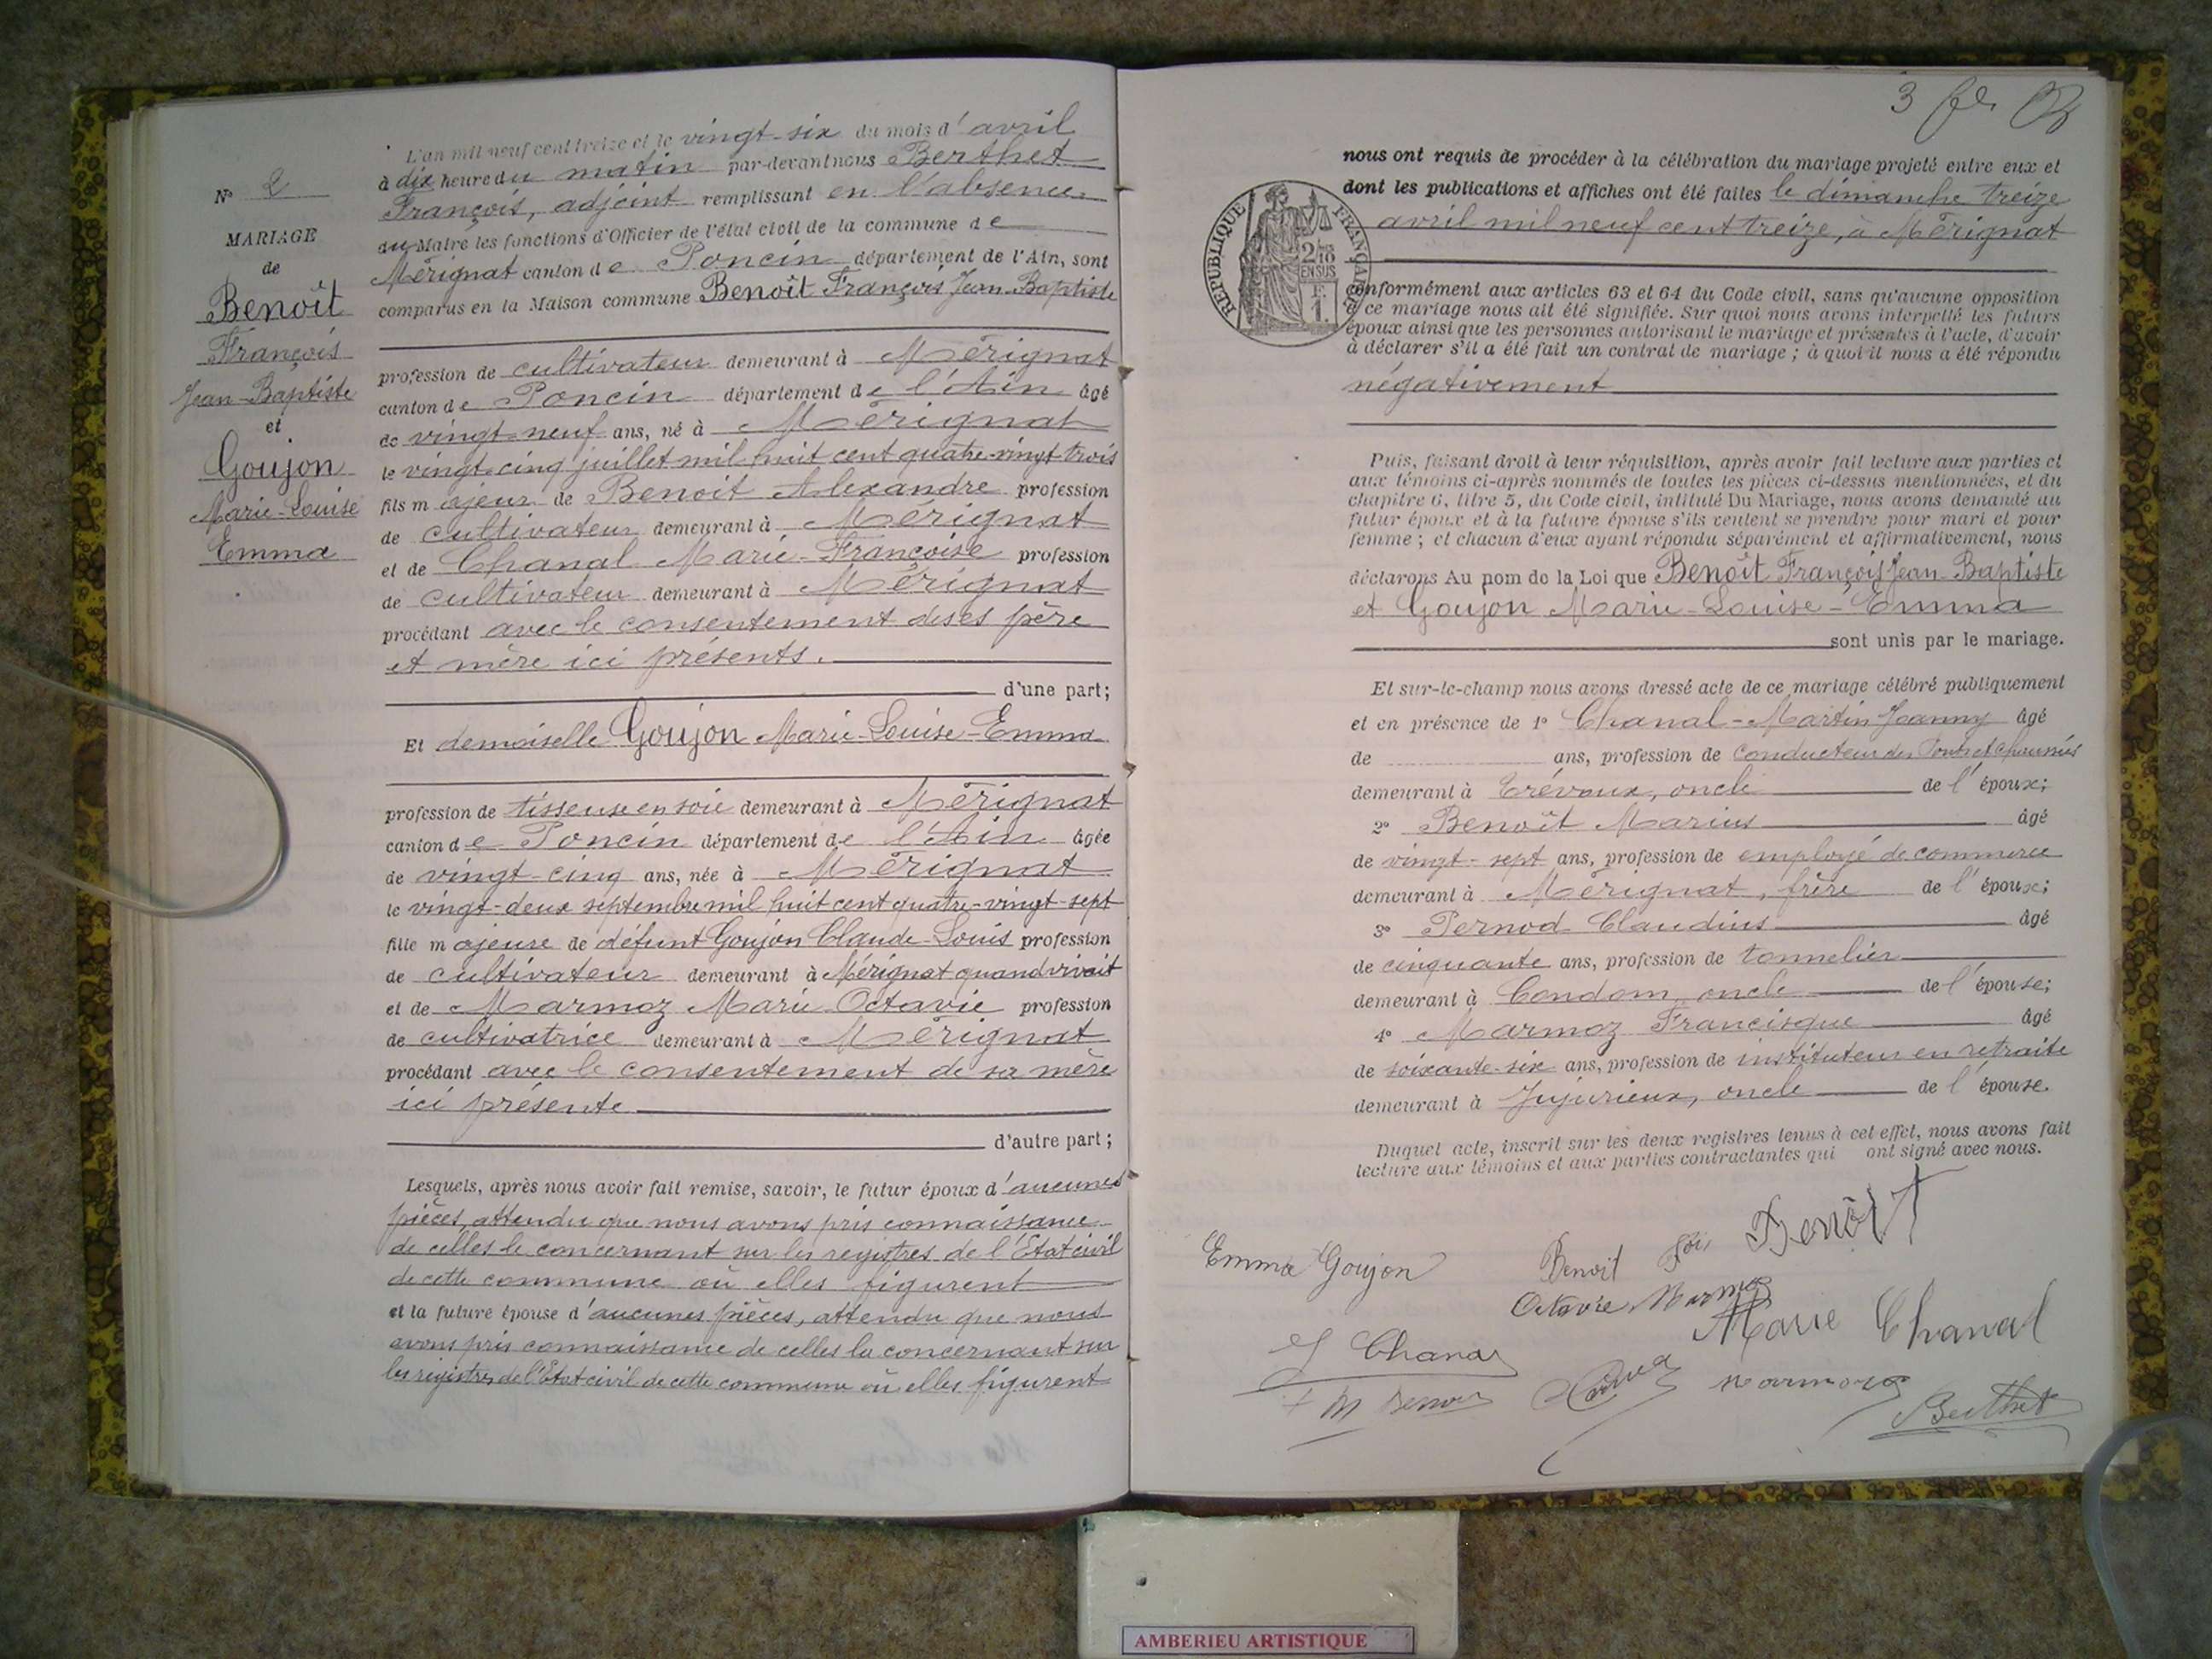 N° 2
MARIAGE
de
Benoît
François
Jean-Baptiste
et
Goujon
Marie-Louise
Emma
L'an mil neuf cent treize et le vingt-six du mois d'avril
à dix heure du matin par-devant nous Berthet
François, adjoint remplissant en l'absence
du Maire les fonctions d'Officier de l'état civil de la commune de
Mérignat canton de Poncin département de l'Ain, sont
comparus en la Maison commune Benoît François Jean-Baptiste
profession de cultivateur demeurant à Mérignat
canton de Poncin département de l'Ain âgé
de vingt-neuf ans, né à Mérignat
le vingt-cinq juillet mil huit cent quatre-vingt-trois
fils majeur de Benoît Alexandre profession
de cultivateur demeurant à Mérignat
et de Chanal Marie-Françoise profession
de cultivateur demeurant à Mérignat
procédant avec le consentement de ses père
et mère ici présents.
d'une part;
Et demoiselle Goujon Marie-Louise-Emma
profession de tisseuse en soie demeurant à Mérignat
canton de Poncin département de l'Ain âgée
de vingt-cinq ans, née à Mérignat
le vingt-deux septembre mil huit cent quatre-vingt-sept
fille majeure de défunt Goujon Claude-Louis profession
de cultivateur demeurant à Mérignat quand vivait
et de Marmoz Marie Octavie profession
de cultivatrice demeurant à Mérignat
procédant avec le consentement de sa mère
ici présente
d'autre part;
Lesquels, après nous avoir fait remise, savoir, le futur époux d'aucunes
pièces, attendu que nous avons pris connaissance
de celles le concernant sur les registres de l'État civil
de cette commune où elles figurent
et la future épouse d'aucunes pièces, attendu que nous
avons pris connaissance de celles la concernant sur
les registres de l'État civil de cette commune où elles figurent
3
nous ont requis de procéder à la célébration du mariage projeté entre eux et
dont les publications et affiches ont été faites le dimanche treize
avril mil neuf cent treize, à Mérignat
RÉPUBLIQUE FRANÇAISE
2/10
EN SUS
F.
1.
conformément aux articles 63 et 64 du Code civil, sans qu'aucune opposition
à ce mariage nous ait été signifiée. Sur quoi nous avons interpellé les futurs
époux ainsi que les personnes autorisant le mariage et présentes à l'acte, d'avoir
à déclarer s'il a été fait un contrat de mariage; à quoi il nous a été répondu
négativement
Puis, faisant droit à leur réquisition, après avoir fait lecture aux parties et
aux témoins ci-après nommés de toutes les pièces ci-dessus mentionnées, et du
chapitre 6, titre 5, du Code civil, intitulé Du Mariage, nous avons demandé au
futur époux et à la future épouse s'ils veulent se prendre pour mari et pour
femme; et chacun d'eux ayant répondu séparément et affirmativement, nous
déclarons Au nom de la Loi que Benoît François Jean-Baptiste
et Goujon Marie-Louise-Emma
sont unis par le mariage.
Et sur-le-champ nous avons dressé acte de ce mariage célébré publiquement
et en présence de 1° Chanal-Martin Joanny âgé
de ans, profession de conducteur des Ponts et Chaussées
demeurant à Trévoux, oncle de l'époux;
2° Benoît Marius âgé
de vingt-sept ans, profession de employé de commerce
demeurant à Mérignat, frère de l'époux;
3° Pernod Claudius âgé
de cinquante ans, profession de tonnelier
demeurant à Condom, oncle de l'épouse;
4° Marmoz Francisque âgé
de soixante-six ans, profession de instituteur en retraite
demeurant à Jujurieux, oncle de l'épouse.
Duquel acte, inscrit sur les deux registres tenus à cet effet, nous avons fait
lecture aux témoins et aux parties contractantes qui ont signé avec nous.
Benoît
Emma Goujon Benoit
Octavie Marmoz
Marie Chanal
J Chanal
M Benoit
Marmoz
Berthet
AMBERIEU ARTISTIQUE